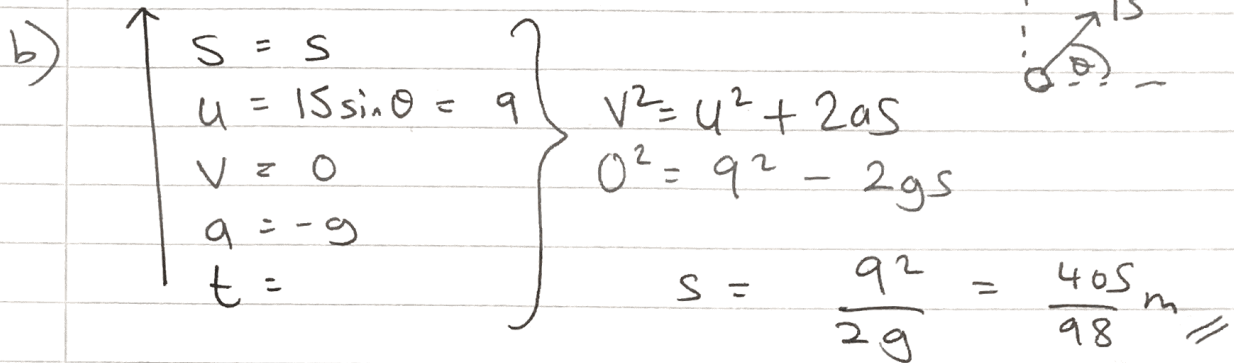 b)
s = s
u = 15 sinθ = 9
v = 0
a = -g
t =
15
θ
v² = u² + 2as
0² = 9² - 2gs
s = 9²/2g = 405/98 m